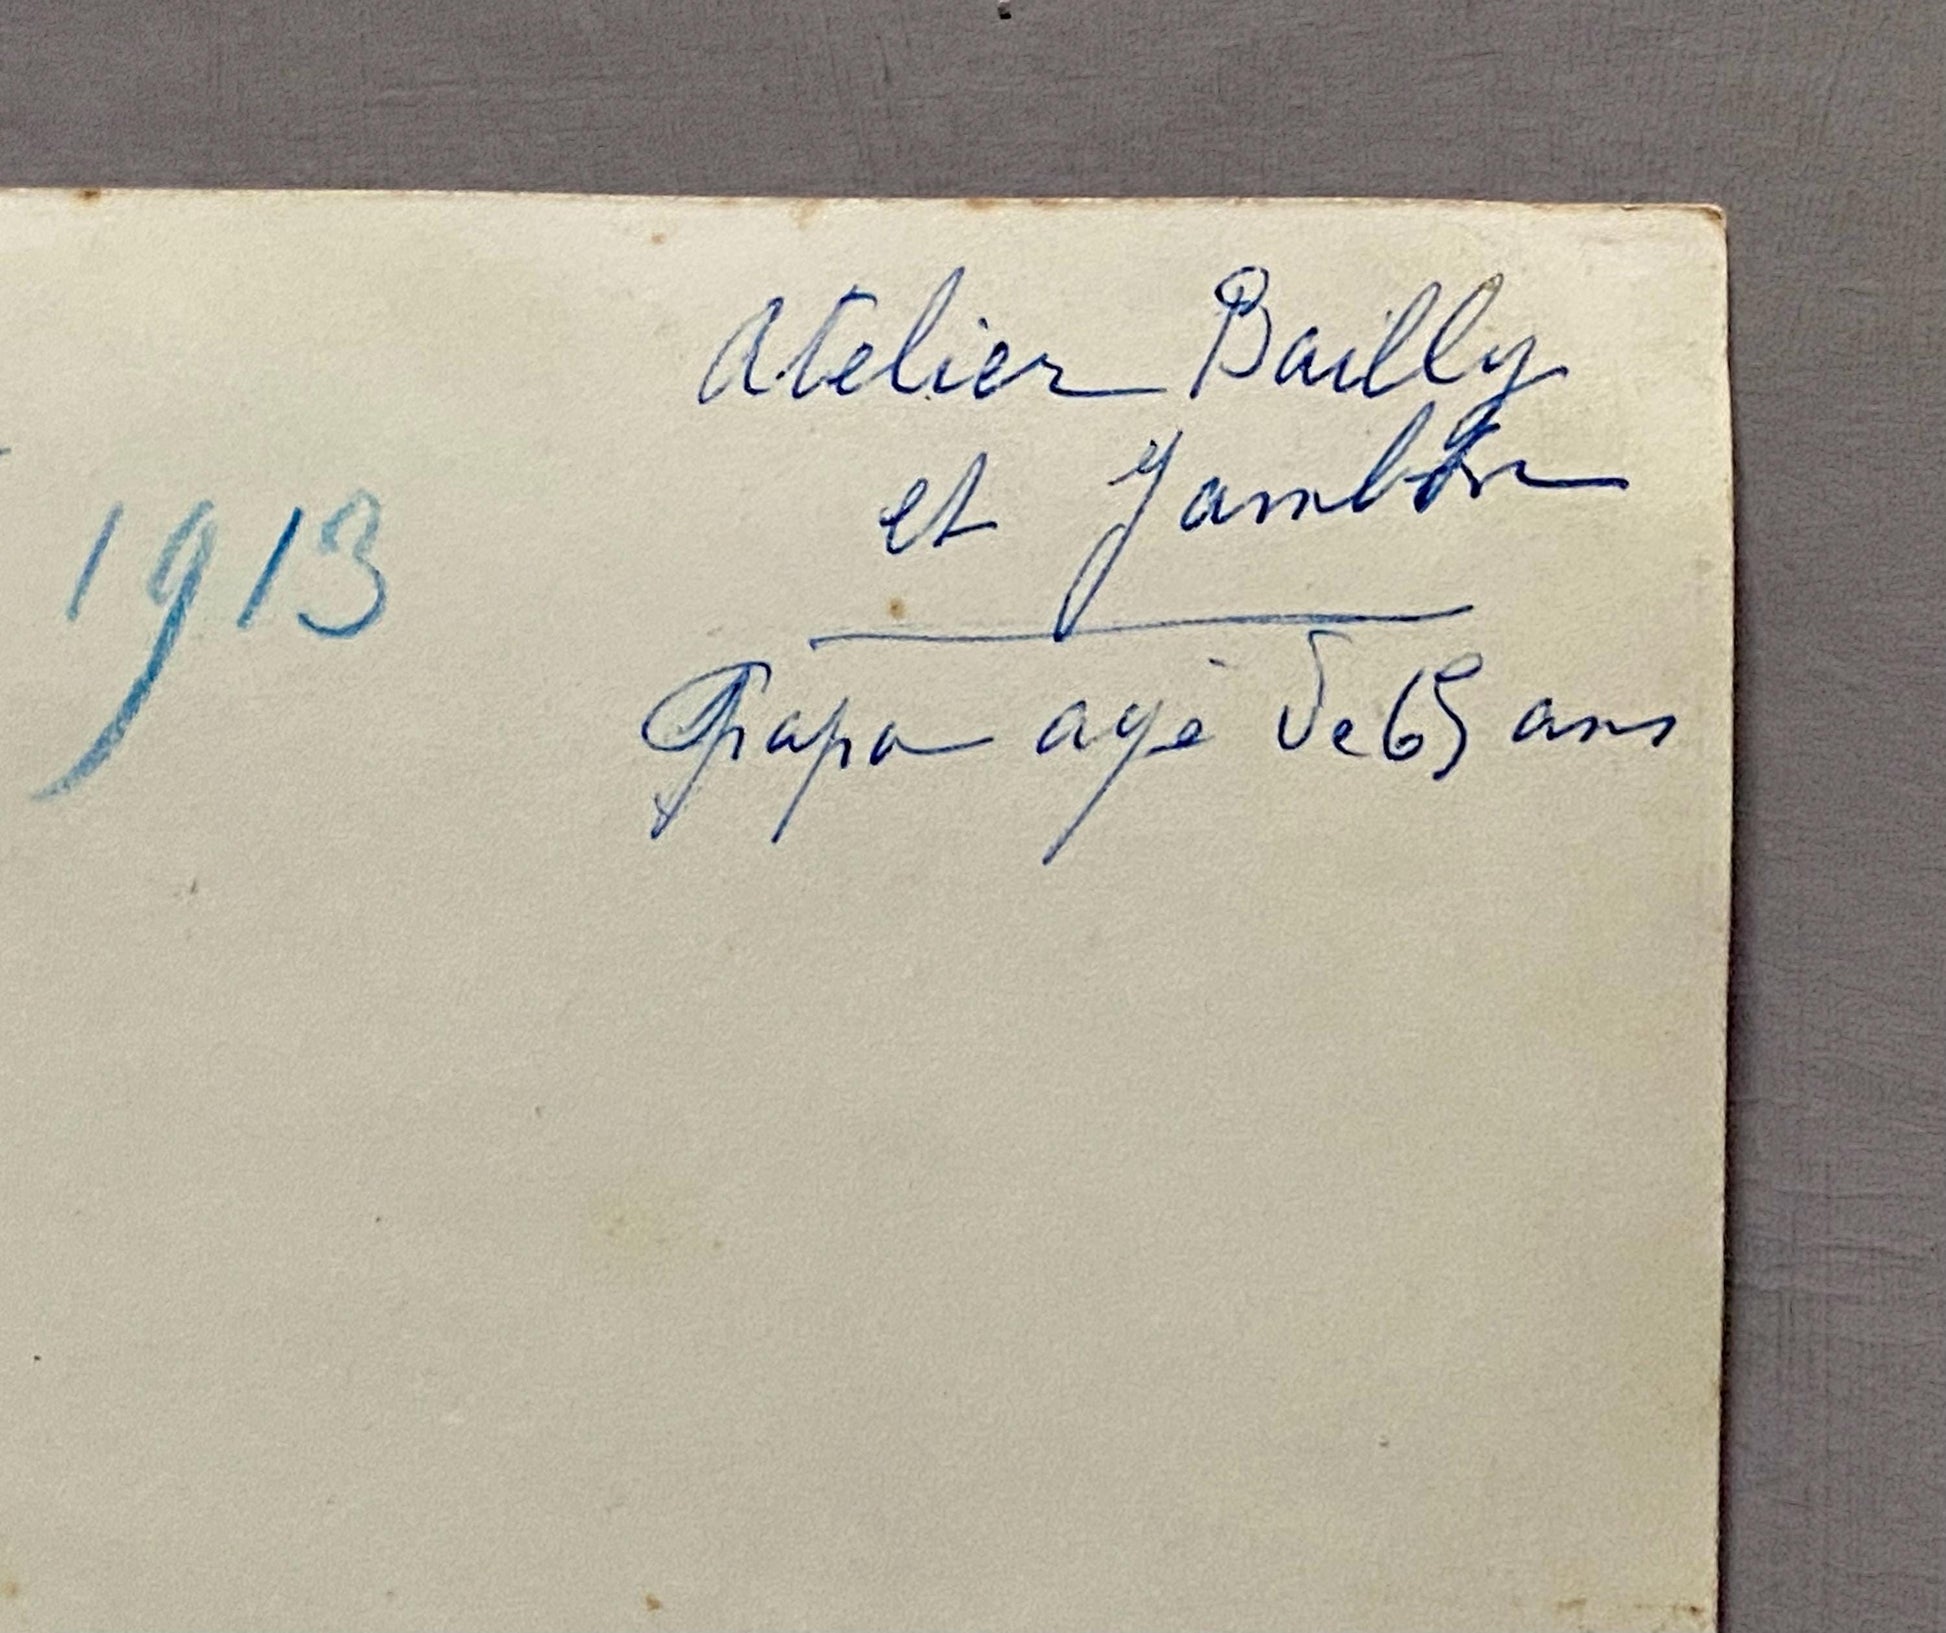 Atelier Bailly
et Jambon
1913
Papa agé de 65 ans